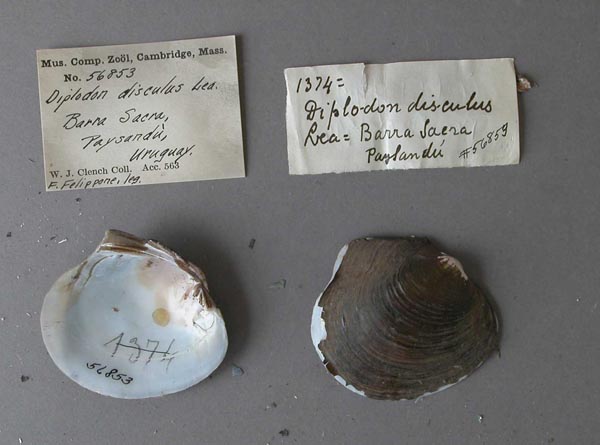 Mus. Comp. Zoöl, Cambridge, Mass.
No. 56853
Diplodon disculus Lea.
Barra Sacra,
Paysandú,
Uruguay.
W. J. Clench Coll. Acc. 563
F. Felippone, leg.
1374=
Diplodon disculus
Lea= Barra Sacra
Paysandú #56853
1374
56853